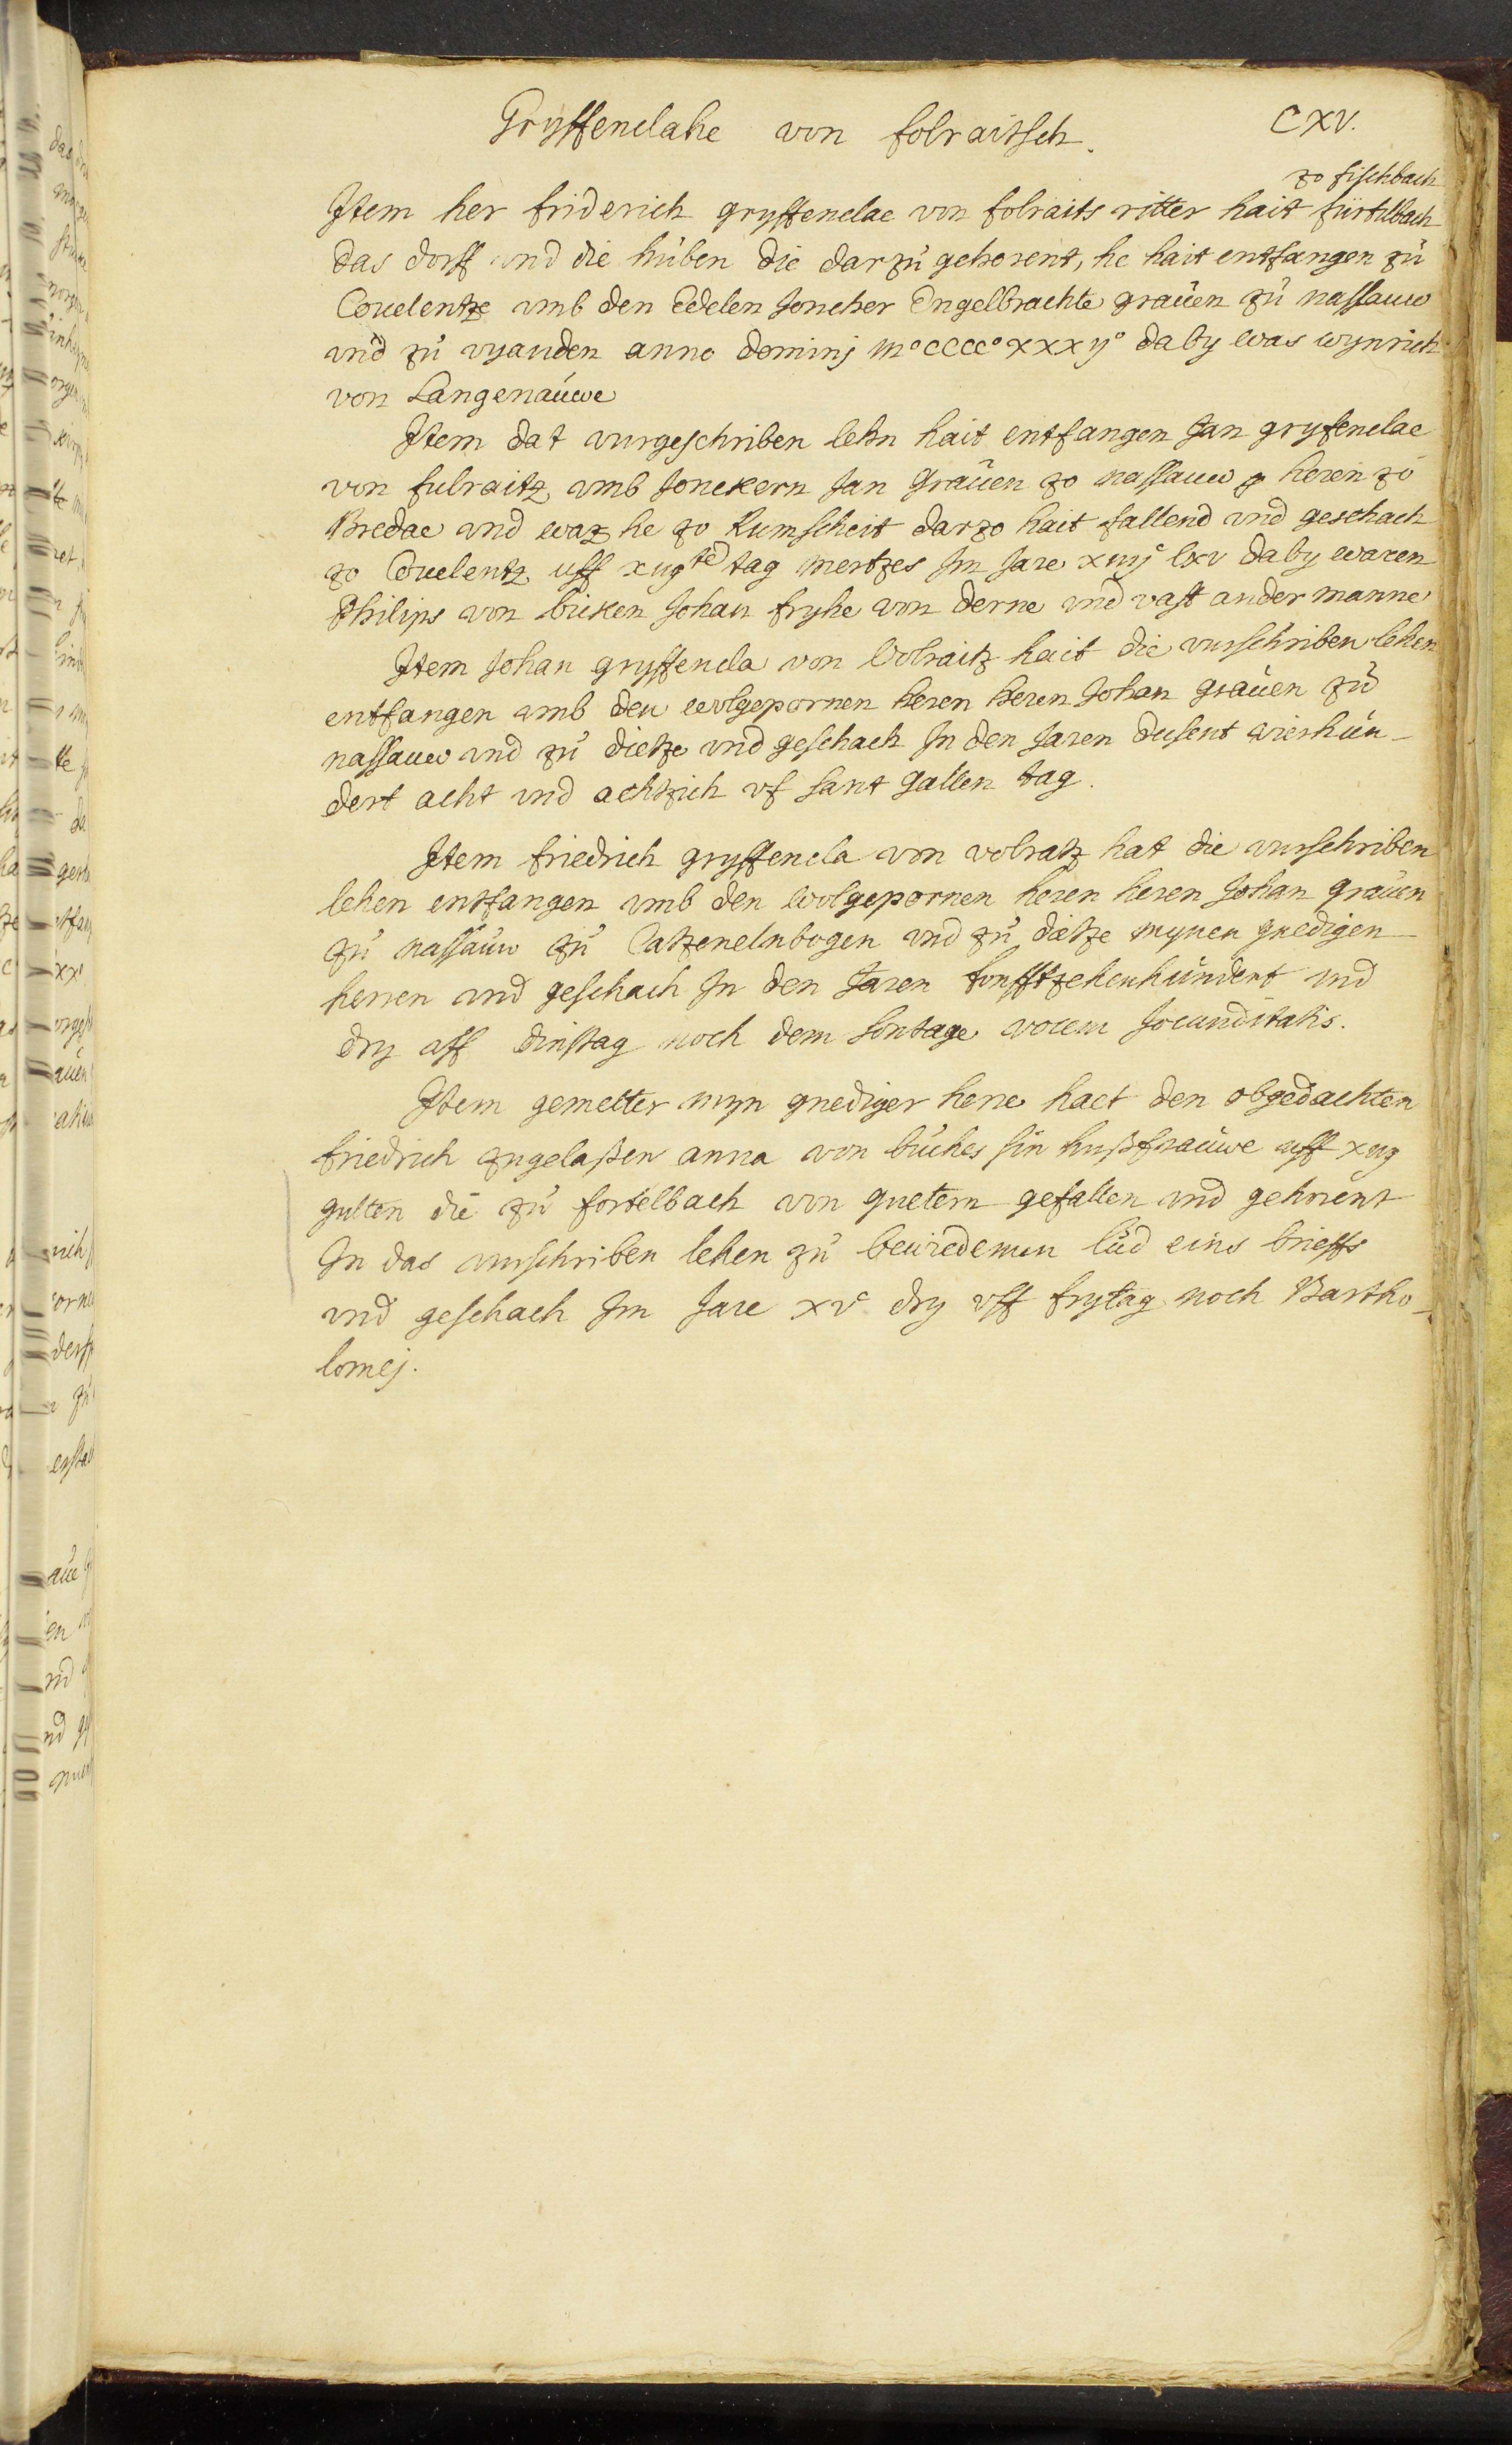 Gryffenclahe von folraitsch.
CXV.
zo fischbach
Item her friderich gryffenclae von folraits ritter hait fürtilbach
das dorff vnd die huben die darzu gehorent, he hait entfangen zu
Couelentze vmb den Edelen Joncher Engelbrachte grauen zu nassauw
vnd zu vyanden anno dominj m° cccc° xxxij° daby was wynrich
von Langenauwe
Item dat vurgeschriben lehn hait entfangen Jan gryfenclae
von fulraitz vmb Jonckern Jan Grauen zo nassauw heren zo
Bredae vnd waz he zo Rumscheit darzo hait fallend vnd geschach
zo Couelentz uff xiijten tag mertzes Im Jare xiiijc lxv daby waren
Philips von bicken Johan fryhe von derne vnd vast ander manne
Item Johan gryffencla von Volraitz hait die vurschriben lehen
entfangen vmb den wolgepornen heren heren Johan grauen zu
nassauw vnd zu dietze vnd geschach In den Jaren dusent vierhun-
dert acht vnd achtzich vf sant Gallen tag.
Item friedrich gryffencla von volratz hat die vurschriben
lehen entfangen vmb den wolgepornen heren heren Johan grauen
zu nassauw zu Catzenelnbogen vnd zu dietze mynen gnedigen
herren vnd geschach In den Jaren funfftzehenhundert vnd
dry uff dinstag noch dem Sontage vocem Jocunditatis.
Item gemelter myn gnediger herre haet den obgedachten
friedrich zugelaßen anna von buches sin hußfrauwe uff xiiij
gulten die zu fortelbach von guetern gefallen vnd gehorent
In das vurschriben lehen zu bewiedemen lud eins brieffs
vnd geschach Im Jare xvc dry vff frytag noch Bartho-
lomej.